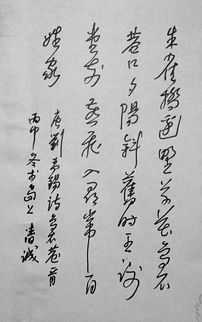 朱雀橋邊野草花烏衣
巷口夕陽斜舊時王謝
堂前燕飛入尋常百
姓家
唐劉禹錫詩烏衣巷首
丙申冬於